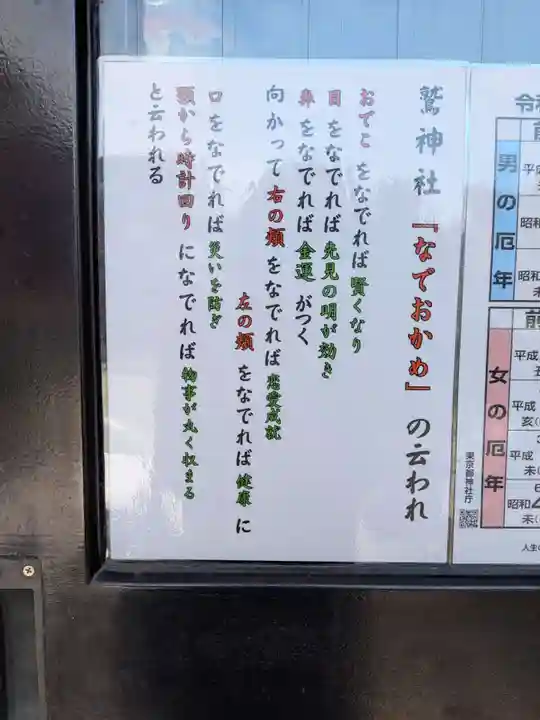 鷲神社『なでおかめ』の云われ
おでこをなでれば賢くなり
目をなでれば先見の明が効き
鼻をなでれば金運がつく
向かって右の頬をなでれば恋愛成就
左の頬をなでれば健康に
口をなでれば災いを防ぎ
顎から時計回りになでれば物事が丸く収まる
と云われる
男の厄年
平成
昭和
昭和
女の厄年
平成
平成
亥
平成
未
昭和
未
東京都神社庁